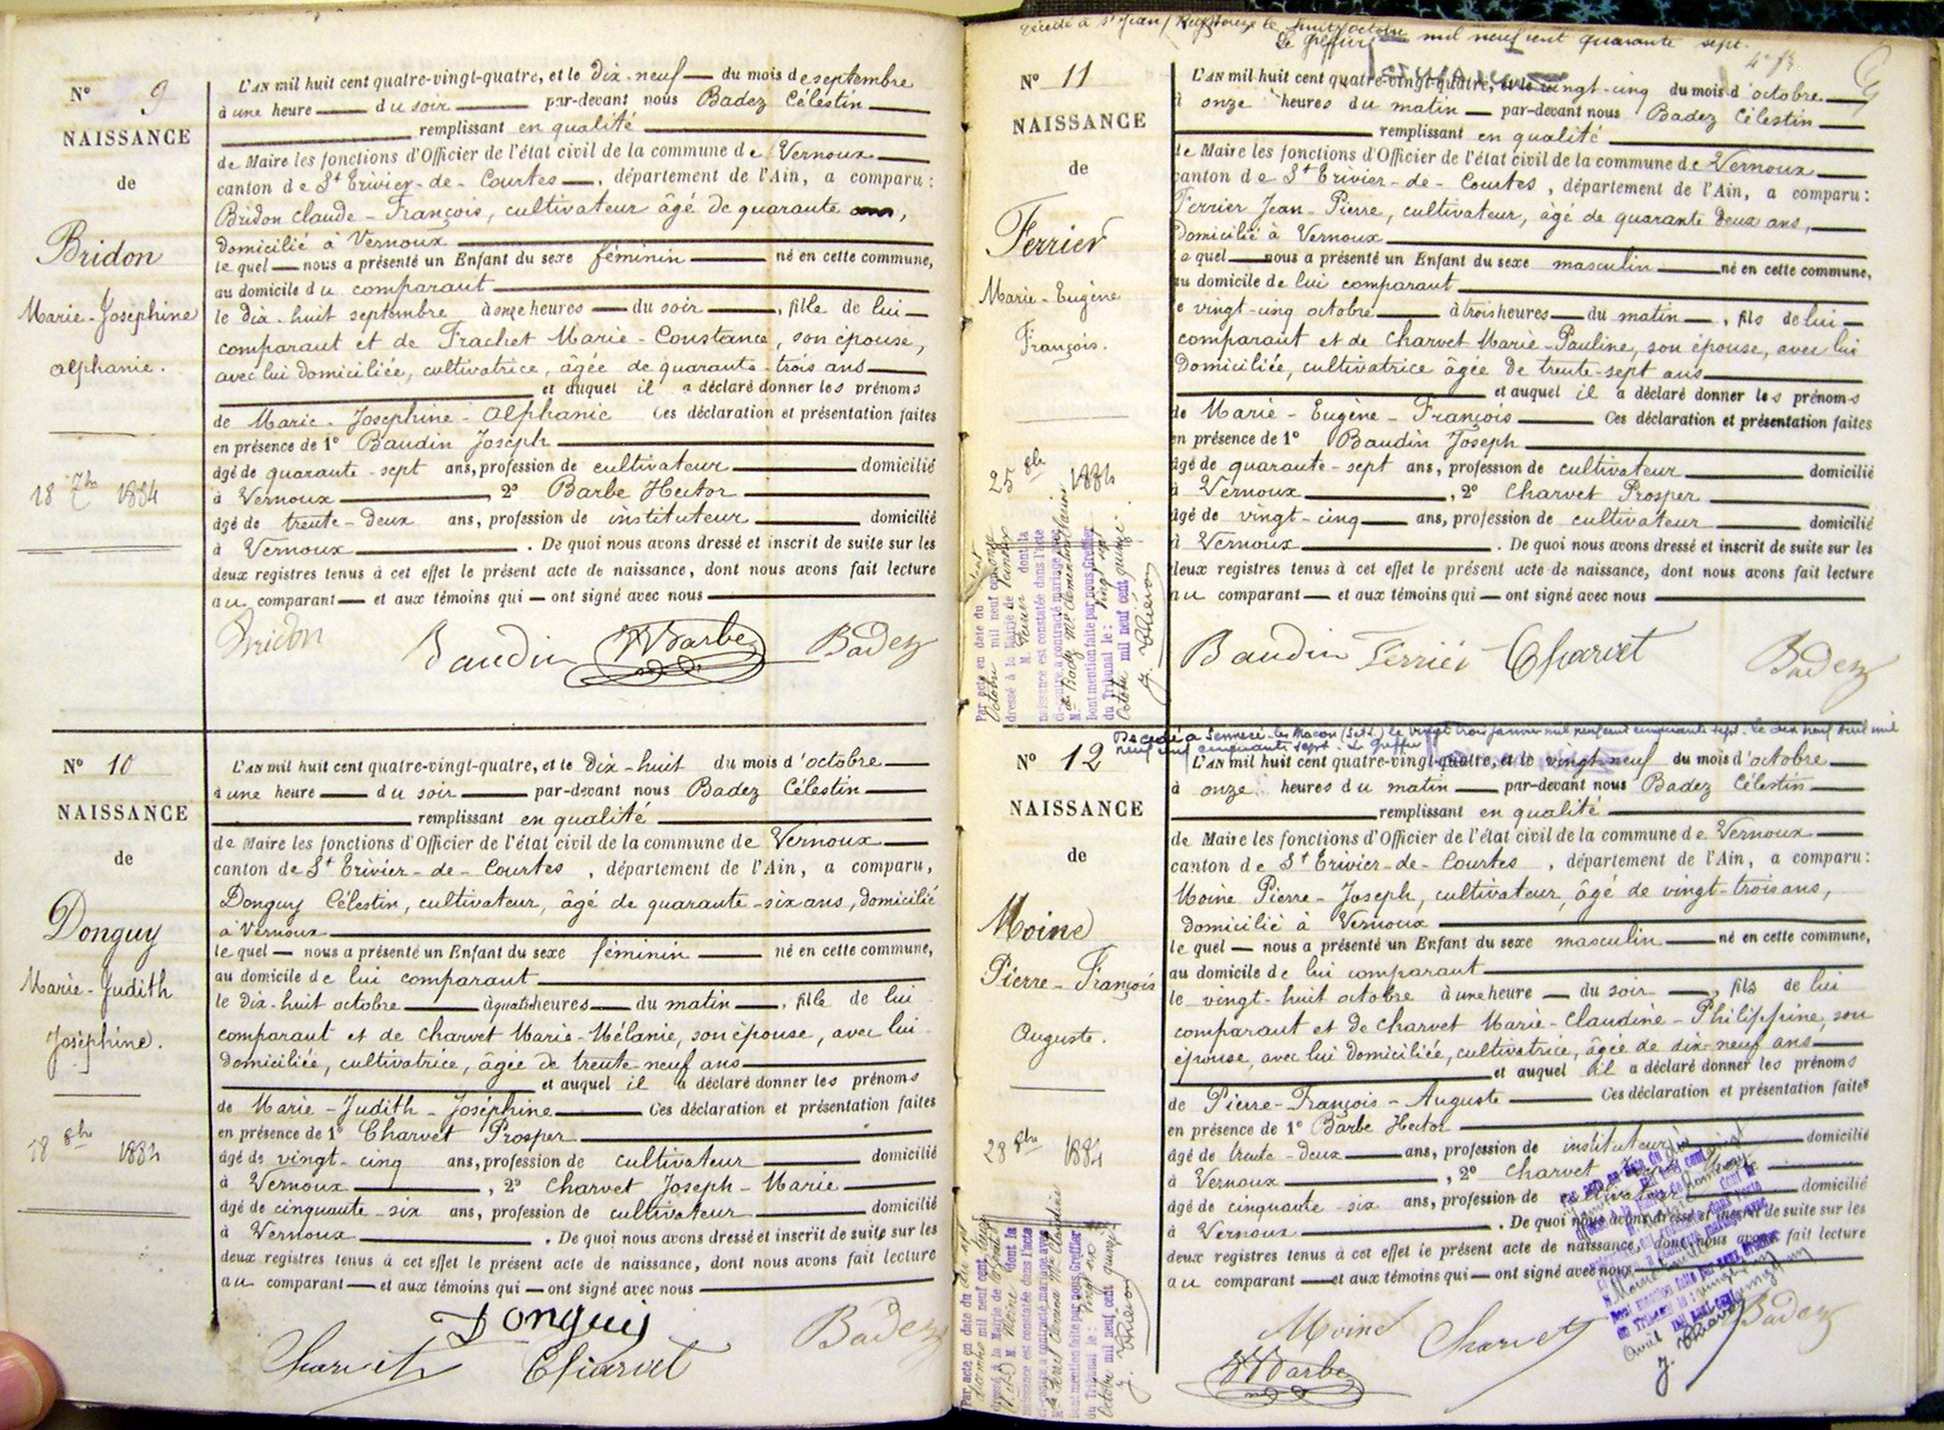 N° 9
NAISSANCE
de
Bridon
Marie-Joséphine
Alphanie.
18 7bre 1884
L'AN mil huit cent quatre-vingt-quatre, et le dix-neuf du mois de septembre
à une heure du soir par-devant nous Badez Célestin
remplissant en qualité
de Maire les fonctions d'Officier de l'état civil de la commune de Vernoux
canton de St Trivier-de-Courtes, département de l'Ain, a comparu :
Bridon Claude-François, cultivateur âgé de quarante ans,
domicilié à Vernoux
lequel nous a présenté un Enfant du sexe féminin né en cette commune,
au domicile du comparant
le dix-huit septembre à onze heures du soir, fille de lui
comparant et de Frachet Marie-Constance, son épouse,
avec lui domiciliée, cultivatrice, âgée de quarante-trois ans
et auquel il a déclaré donner les prénoms
de Marie-Joséphine-Alphanie Ces déclaration et présentation faites
en présence de 1° Baudin Joseph
âgé de quarante-sept ans, profession de cultivateur domicilié
à Vernoux, 2° Barbe Hector
âgé de trente-deux ans, profession de instituteur domicilié
à Vernoux. De quoi nous avons dressé et inscrit de suite sur les
deux registres tenus à cet effet le présent acte de naissance, dont nous avons fait lecture
au comparant et aux témoins qui ont signé avec nous
Bridon Baudin HBarbe Badez
N° 10
NAISSANCE
de
Donguy
Marie-Judith
Joséphine.
18 8bre 1884
L'AN mil huit cent quatre-vingt-quatre, et le dix-huit du mois d'octobre
à une heure du soir par-devant nous Badez Célestin
remplissant en qualité
de Maire les fonctions d'Officier de l'état civil de la commune de Vernoux
canton de St Trivier-de-Courtes, département de l'Ain, a comparu,
Donguy Célestin, cultivateur, âgé de quarante-six ans, domicilié
à Vernoux
lequel nous a présenté un Enfant du sexe féminin né en cette commune,
au domicile de lui comparant
le dix-huit octobre à quatre heures du matin, fille de lui
comparant et de Charvet Marie-Mélanie, son épouse, avec lui
domiciliée, cultivatrice, âgée de trente-neuf ans
et auquel il a déclaré donner les prénoms
de Marie-Judith-Joséphine Ces déclaration et présentation faites
en présence de 1° Charvet Prosper
âgé de vingt-cinq ans, profession de cultivateur domicilié
à Vernoux, 2° Charvet Joseph-Marie
âgé de cinquante-six ans, profession de cultivateur domicilié
à Vernoux. De quoi nous avons dressé et inscrit de suite sur les
deux registres tenus à cet effet le présent acte de naissance, dont nous avons fait lecture
au comparant et aux témoins qui ont signé avec nous
Donguy
Charvet Charvet Badez
Décédé à St Jean / Reyssouze le huit octobre
mil neuf cent quarante sept.
Le Greffier
N° 11
NAISSANCE
de
Ferrier
Marie-Eugène
François.
25 8bre 1884
Par acte en date du
Octobre mil neuf cent
dressé à la Mairie de
M. Ferrier dont la
naissance est constatée dans l'acte
ci-contre a contracté mariage avec
Dont mention faite par nous, Greffier
du Tribunal le : vingt sept
Octobre mil neuf cent quinze.
L'AN mil huit cent quatre-vingt-quatre, et le vingt-cinq du mois d'octobre
à onze heures du matin par-devant nous Badez Célestin
remplissant en qualité
de Maire les fonctions d'Officier de l'état civil de la commune de Vernoux
canton de St Trivier-de-Courtes, département de l'Ain, a comparu :
Ferrier Jean-Pierre, cultivateur, âgé de quarante deux ans,
domicilié à Vernoux
lequel nous a présenté un Enfant du sexe masculin né en cette commune,
au domicile de lui comparant
le vingt-cinq octobre à trois heures du matin, fils de lui
comparant et de Charvet Marie-Pauline, son épouse, avec lui
domiciliée, cultivatrice âgée de trente-sept ans
et auquel il a déclaré donner les prénoms
de Marie-Eugène-François Ces déclaration et présentation faites
en présence de 1° Baudin Joseph
âgé de quarante-sept ans, profession de cultivateur domicilié
à Vernoux, 2° Charvet Prosper
âgé de vingt-cinq ans, profession de cultivateur domicilié
à Vernoux. De quoi nous avons dressé et inscrit de suite sur les
deux registres tenus à cet effet le présent acte de naissance, dont nous avons fait lecture
au comparant et aux témoins qui ont signé avec nous
Baudin Ferrier Charvet Badez
Décédé à Sennecé-les-Macon (S&L) le vingt trois janvier mil neuf cent cinquante sept. Le dix neuf avril mil
neuf cent cinquante sept. Le Greffier
N° 12
NAISSANCE
de
Moine
Pierre-François
Auguste.
28 8bre 1884
Par acte en date du
mil neuf cent
dressé à la Mairie de
M. Moine dont la
naissance est constatée dans l'acte
ci-contre a contracté mariage avec
Dont mention faite par nous, Greffier
du Tribunal le : vingt six
Octobre mil neuf cent quinze
L'AN mil huit cent quatre-vingt-quatre, et le vingt-neuf du mois d'octobre
à onze heures du matin par-devant nous Badez Célestin
remplissant en qualité
de Maire les fonctions d'Officier de l'état civil de la commune de Vernoux
canton de St Trivier-de-Courtes, département de l'Ain, a comparu :
Moine Pierre-Joseph, cultivateur, âgé de vingt-trois ans,
domicilié à Vernoux
lequel nous a présenté un Enfant du sexe masculin né en cette commune,
au domicile de lui comparant
le vingt-huit octobre à une heure du soir, fils de lui
comparant et de Charvet Marie-Claudine-Philippine, son
épouse, avec lui domiciliée, cultivatrice, âgée de dix-neuf ans
et auquel il a déclaré donner les prénoms
de Pierre-François-Auguste Ces déclaration et présentation faites
en présence de 1° Barbe Hector
âgé de trente-deux ans, profession de instituteur domicilié
à Vernoux, 2° Charvet
âgé de cinquante-six ans, profession de cultivateur domicilié
à Vernoux. De quoi nous avons dressé et inscrit de suite sur les
deux registres tenus à cet effet le présent acte de naissance, dont nous avons fait lecture
au comparant et aux témoins qui ont signé avec nous
Moine Charvet Badez
HBarbe